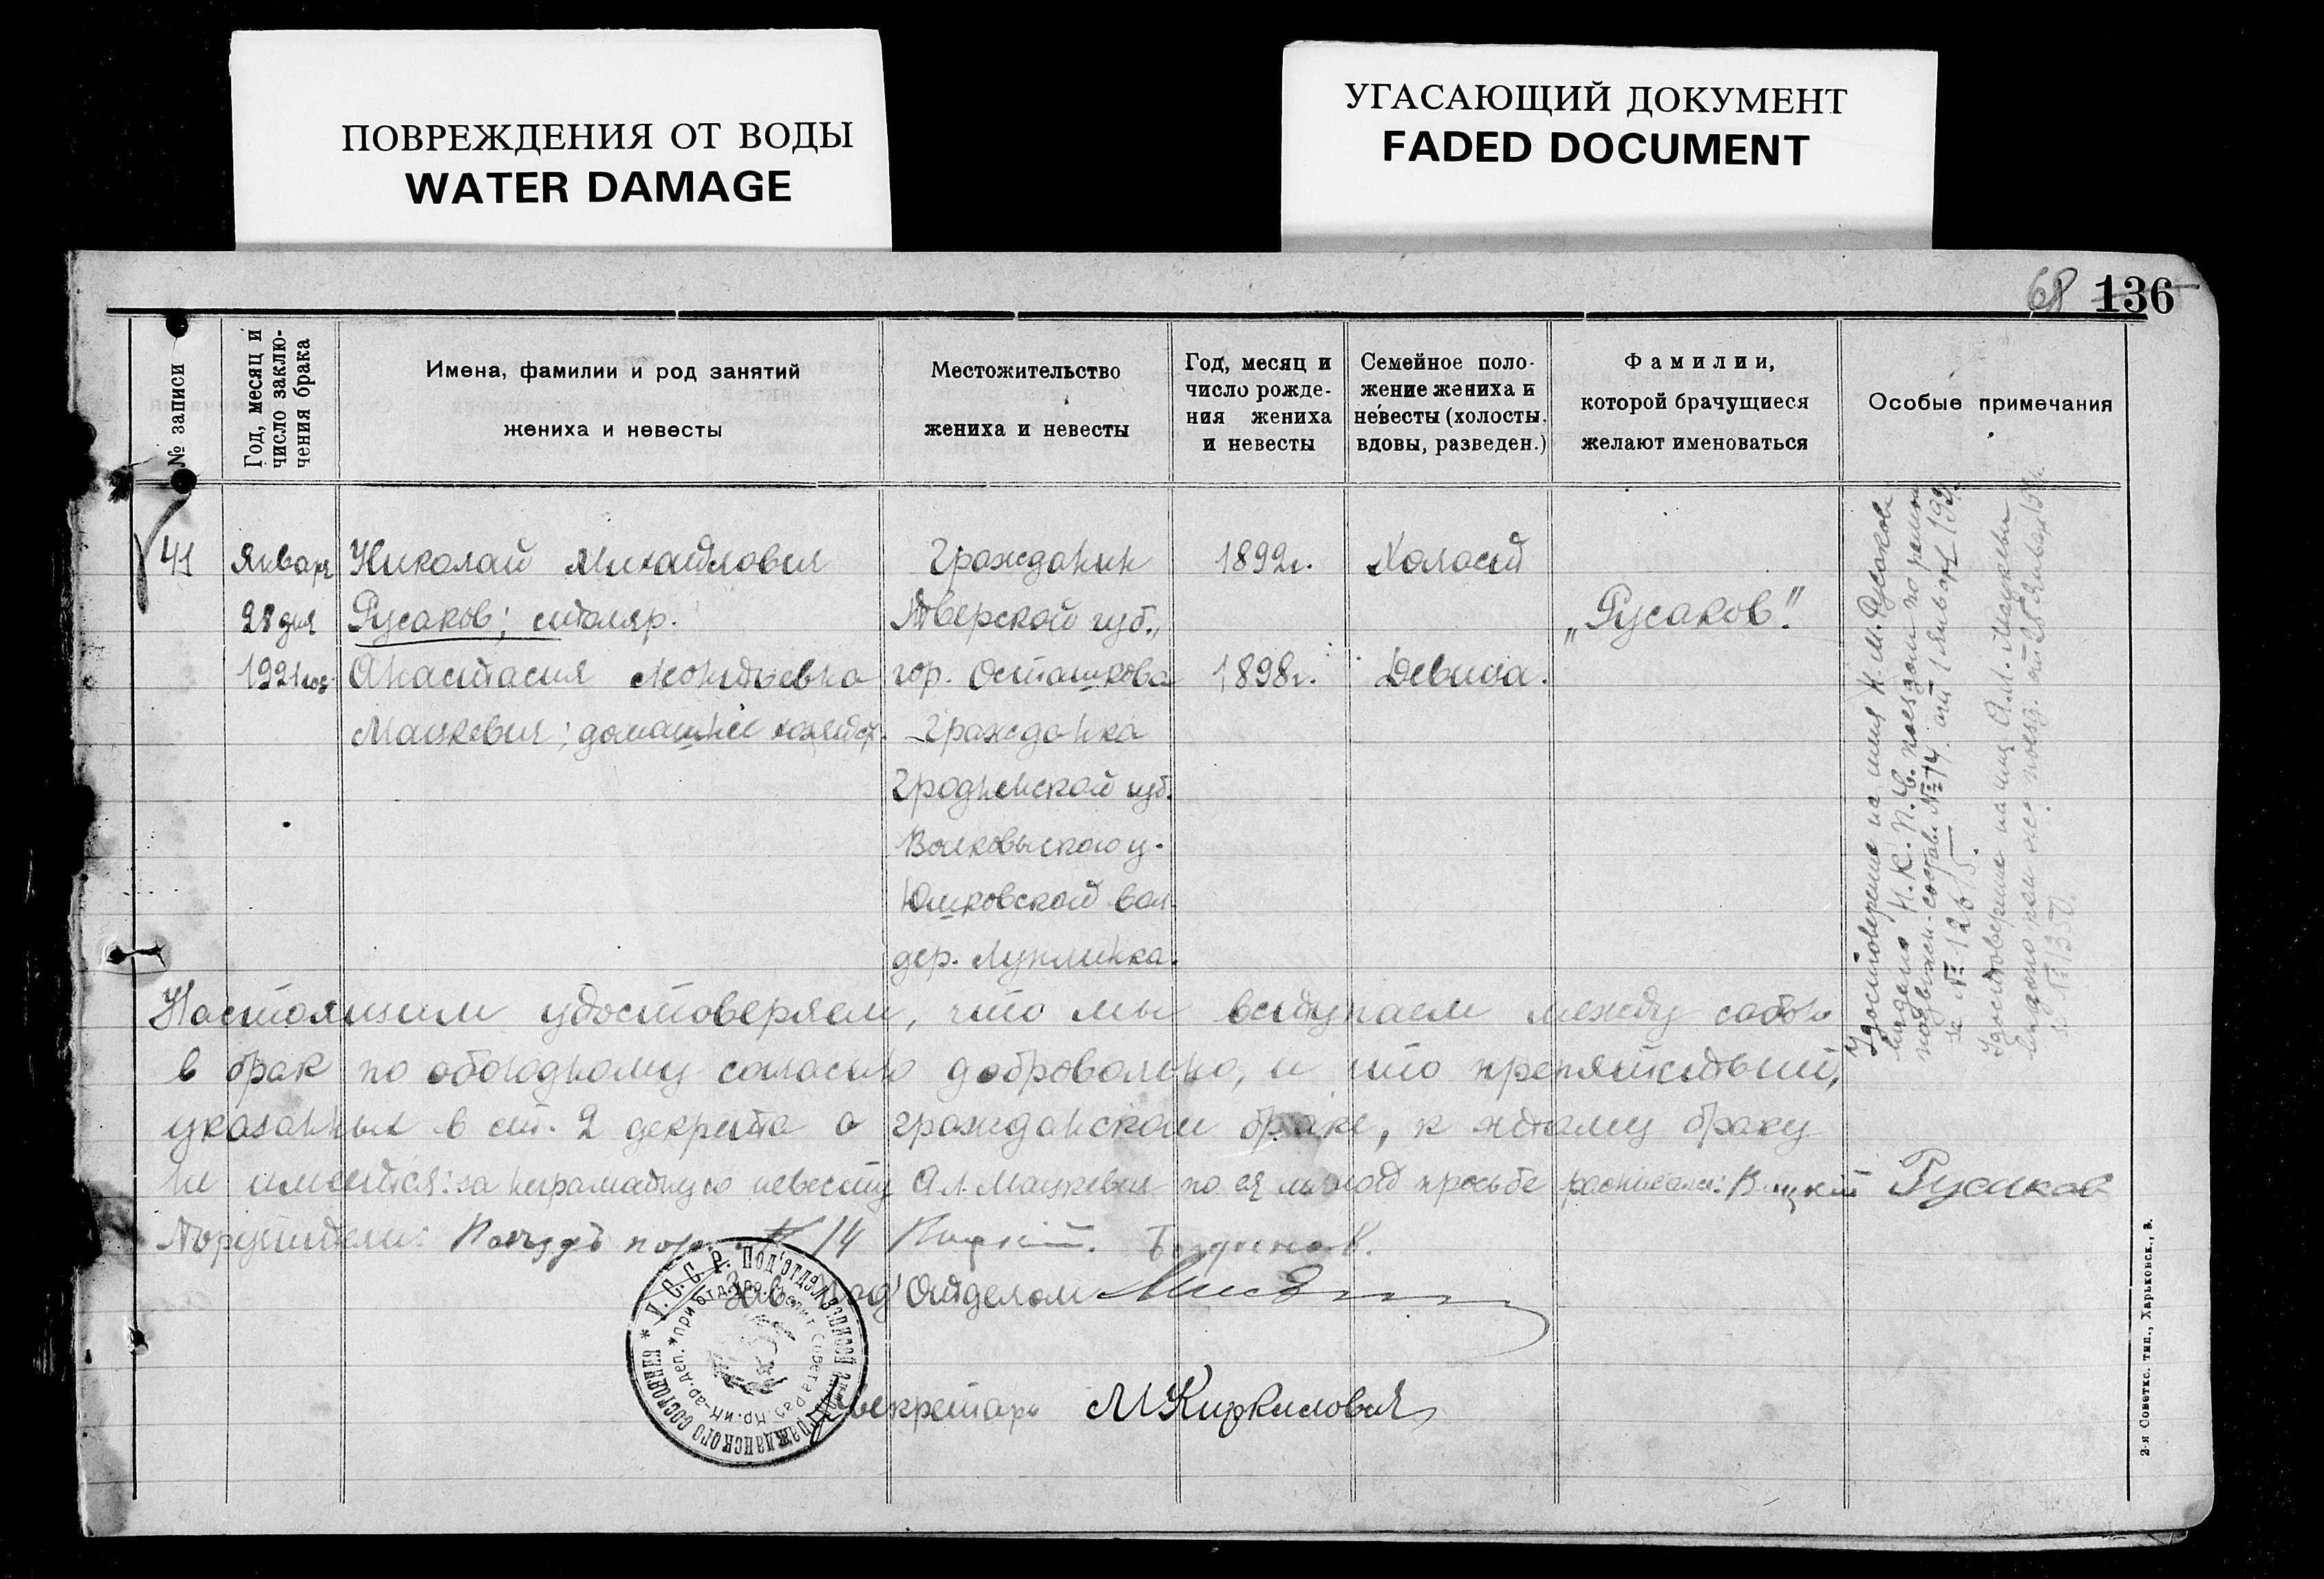 ПОВРЕЖДЕНИЯ ОТ ВОДЫ
WATER DAMAGE
УГАСАЮЩИЙ ДОКУМЕНТ
FADED DOCUMENT
68 136
№ записи
Год, месяц и
число заклю-
чения брака
Имена, фамилии и род занятий
жениха и невесты
Местожительство
жениха и невесты
Год, месяц и
число рожде-
ния жениха
и невесты
Семейное поло-
жение жениха и
невесты (холосты,
вдовы, разведен.)
Фамилии,
которой брачущиеся
желают именоваться
Особые примечания
41
Января
28 дня
1921 год.
Николай Михайлович
Русаков; столяр.
Анастасия Леонтьевна
Мацкевич; домашнее хозяйст.
Гражданин
Тверской губ.,
гор. Осташкова
Гражданка
Гродненской губ.
Волковыского у.
дер.
1892г.
1898г.
Холост
Девица.
„Русаков."
Удостоверение на имя Н. М. Русакова
выдано Н. К. П. С. поездом по ремонт
подвижн. состава № 14. от 1 Января 1921
за № 126
Удостоверение на имя А. Л. Мацкевич
выдано тем же поезд. от 25 Января 1921г.
за № 1350.
Настоящим удостоверяем, что мы вступаем между собою
в брак по обоюдному согласию добровольно, и что препятствий,
указанных в ст. 2 декрета о гражданском браке, к этому браку
не имеется: за неграмотную невесту А.Л. Мацкевич по ея личной просьбе расписался: Русаков
Поручители: Поездъ 14
Зав. Под'Отделом
Секретарь М Киркилович
У. С. С. Р. Под'отдел записей актов гражданского состояния
2-я Советск. тип., Харьковск., 3.